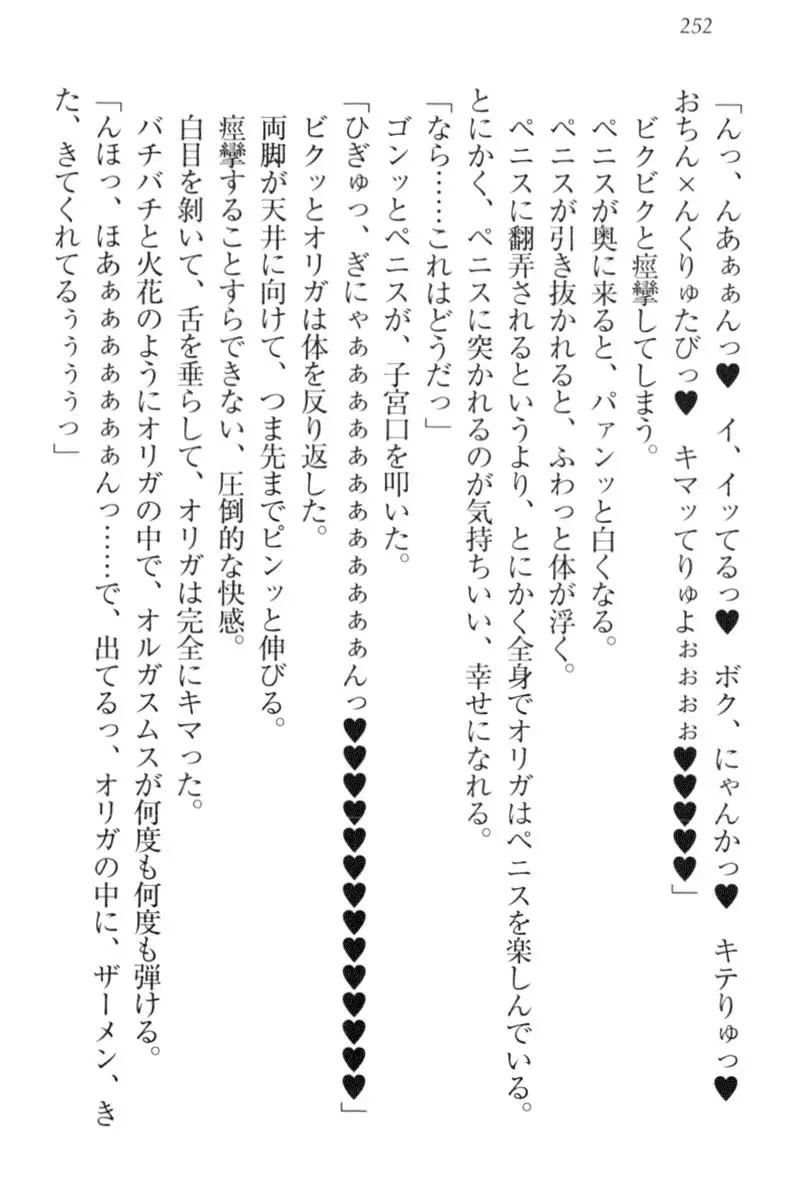 252
「んっ、んあぁぁんっ♥　イ、イッてるっ♥　ボク、にゃんかっ♥　キテりゅっ♥
おちん×んくりゅたびっ♥　キマッてりゅよぉぉぉぉ♥♥♥♥♥」
ビクビクと痙攣してしまう。
ペニスが奥に来ると、パァンッと白くなる。
ペニスが引き抜かれると、ふわっと体が浮く。
ペニスに翻弄されるというより、とにかく全身でオリガはペニスを楽しんでいる。
とにかく、ペニスに突かれるのが気持ちいい、幸せになれる。
「なら……これはどうだっ」
ゴンッとペニスが、子宮口を叩いた。
「ひぎゅっ、ぎにゃぁぁぁぁぁぁぁぁぁぁぁぁんっ♥♥♥♥♥♥♥♥♥♥♥♥♥♥」
ビクッとオリガは体を反り返した。
両脚が天井に向けて、つま先までピンッと伸びる。
痙攣することすらできない、圧倒的な快感。
白目を剝いて、舌を垂らして、オリガは完全にキマった。
バチバチと火花のようにオリガの中で、オルガスムスが何度も何度も弾ける。
「んほっ、ほあぁぁぁぁぁぁぁんっ……で、出てるっ、オリガの中に、ザーメン、き
た、きてくれてるぅぅぅぅっ」